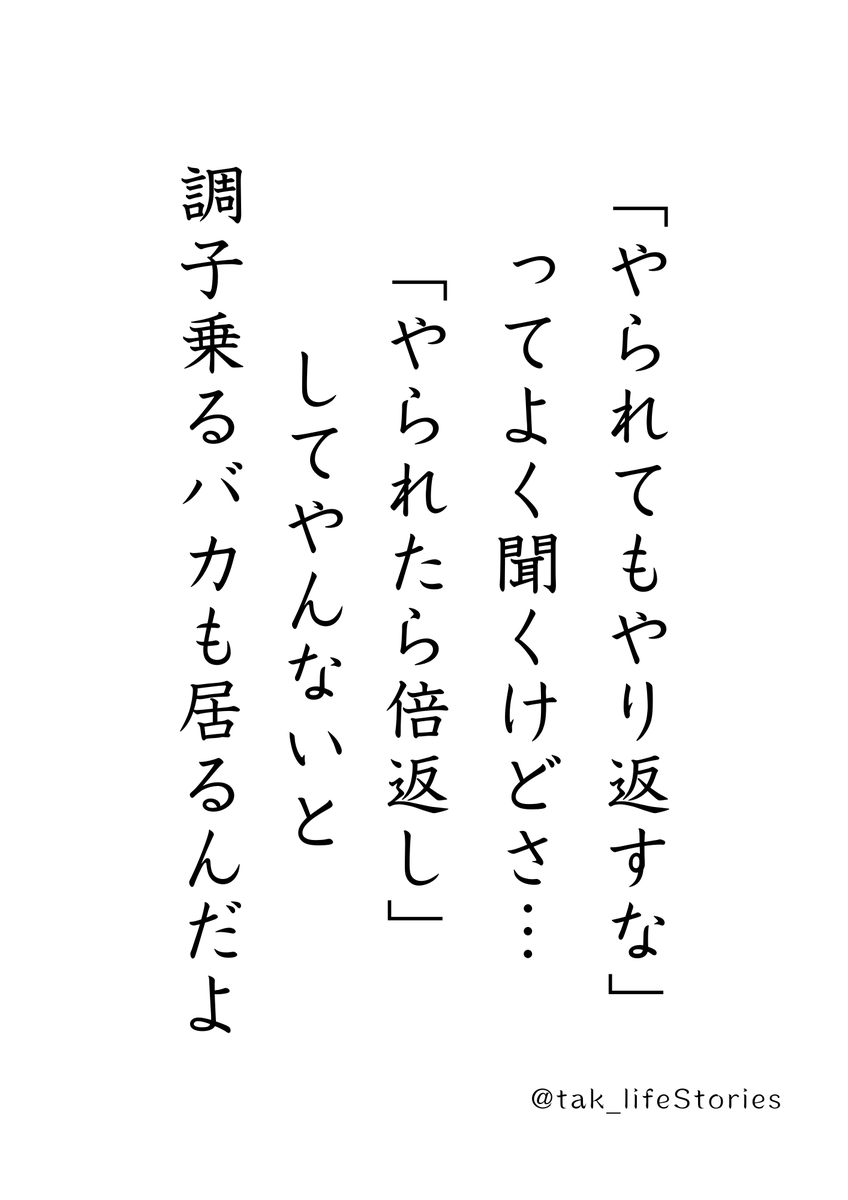 「やられてもやり返すな」
ってよく聞くけどさ…
「やられたら倍返し」
してやんないと
調子乗るバカも居るんだよ
@tak_lifeStories